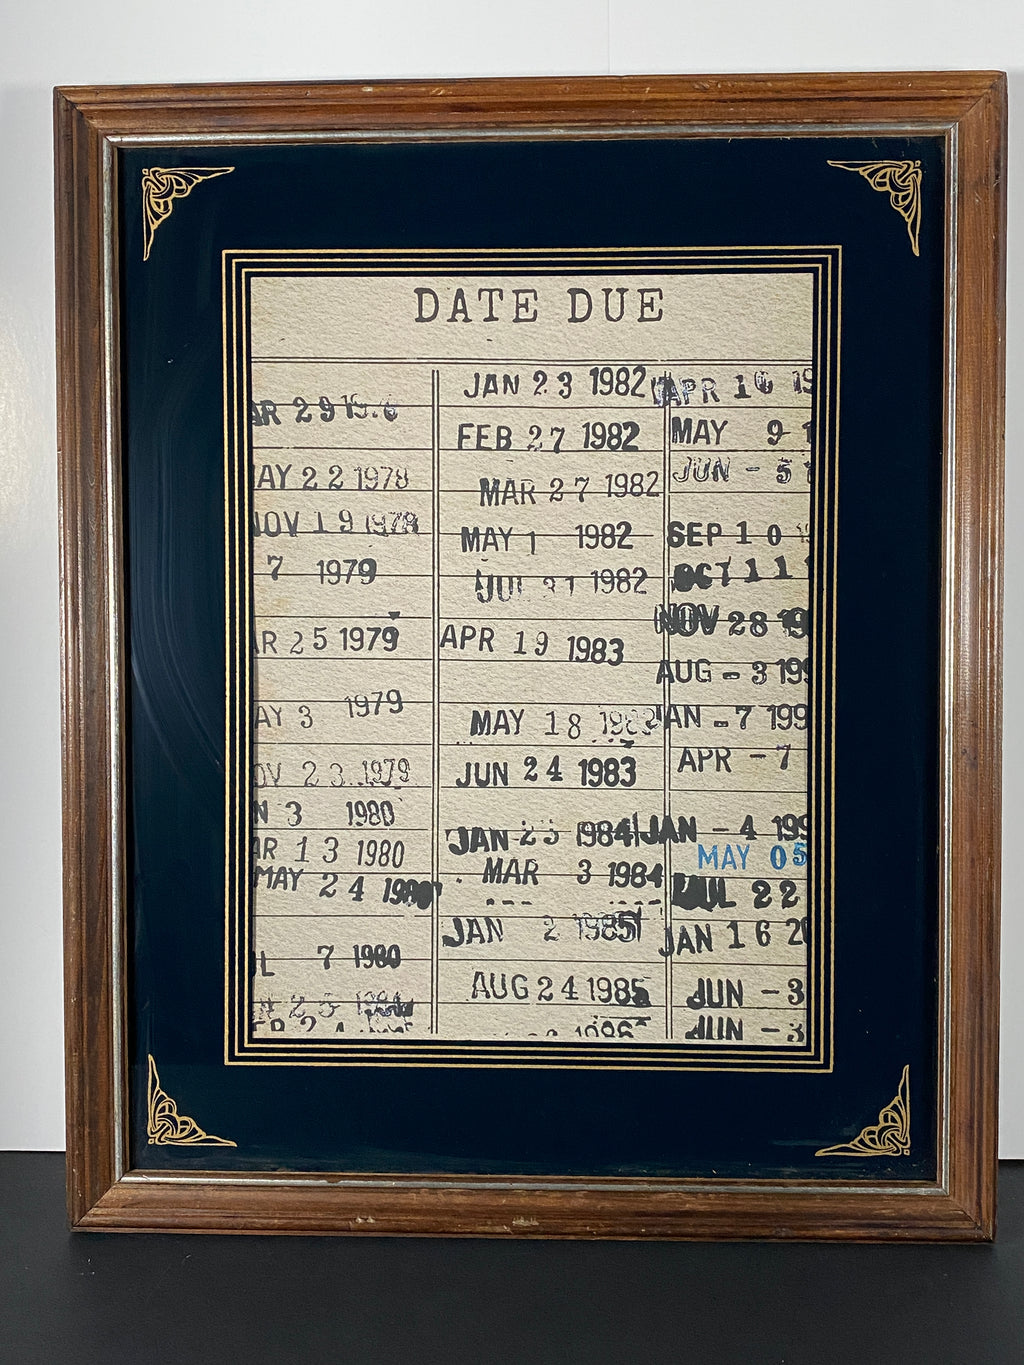 DATE DUE
AR 29
AY 22 1978
NOV 19 1978
7 1979
AR 25 1979
AY 3 1979
OV 23 1979
N 3 1980
AR 13 1980
MAY 24
L 7 1980
JAN 23 1982
FEB 27 1982
MAR 27 1982
MAY 1 1982
JUL 31 1982
APR 19 1983
MAY 18
JUN 24 1983
JAN 23 1984
MAR 3 1984
JAN 2 1985
AUG 24 1985
1986
APR 1
MAY 9
JUN - 5
SEP 10
OCT 11 1
NOV 28 19
AUG - 3 199
JAN - 7 199
APR - 7
JAN - 4 199
MAY 05
JUL 22
JAN 16 20
JUN - 3
JUN - 3